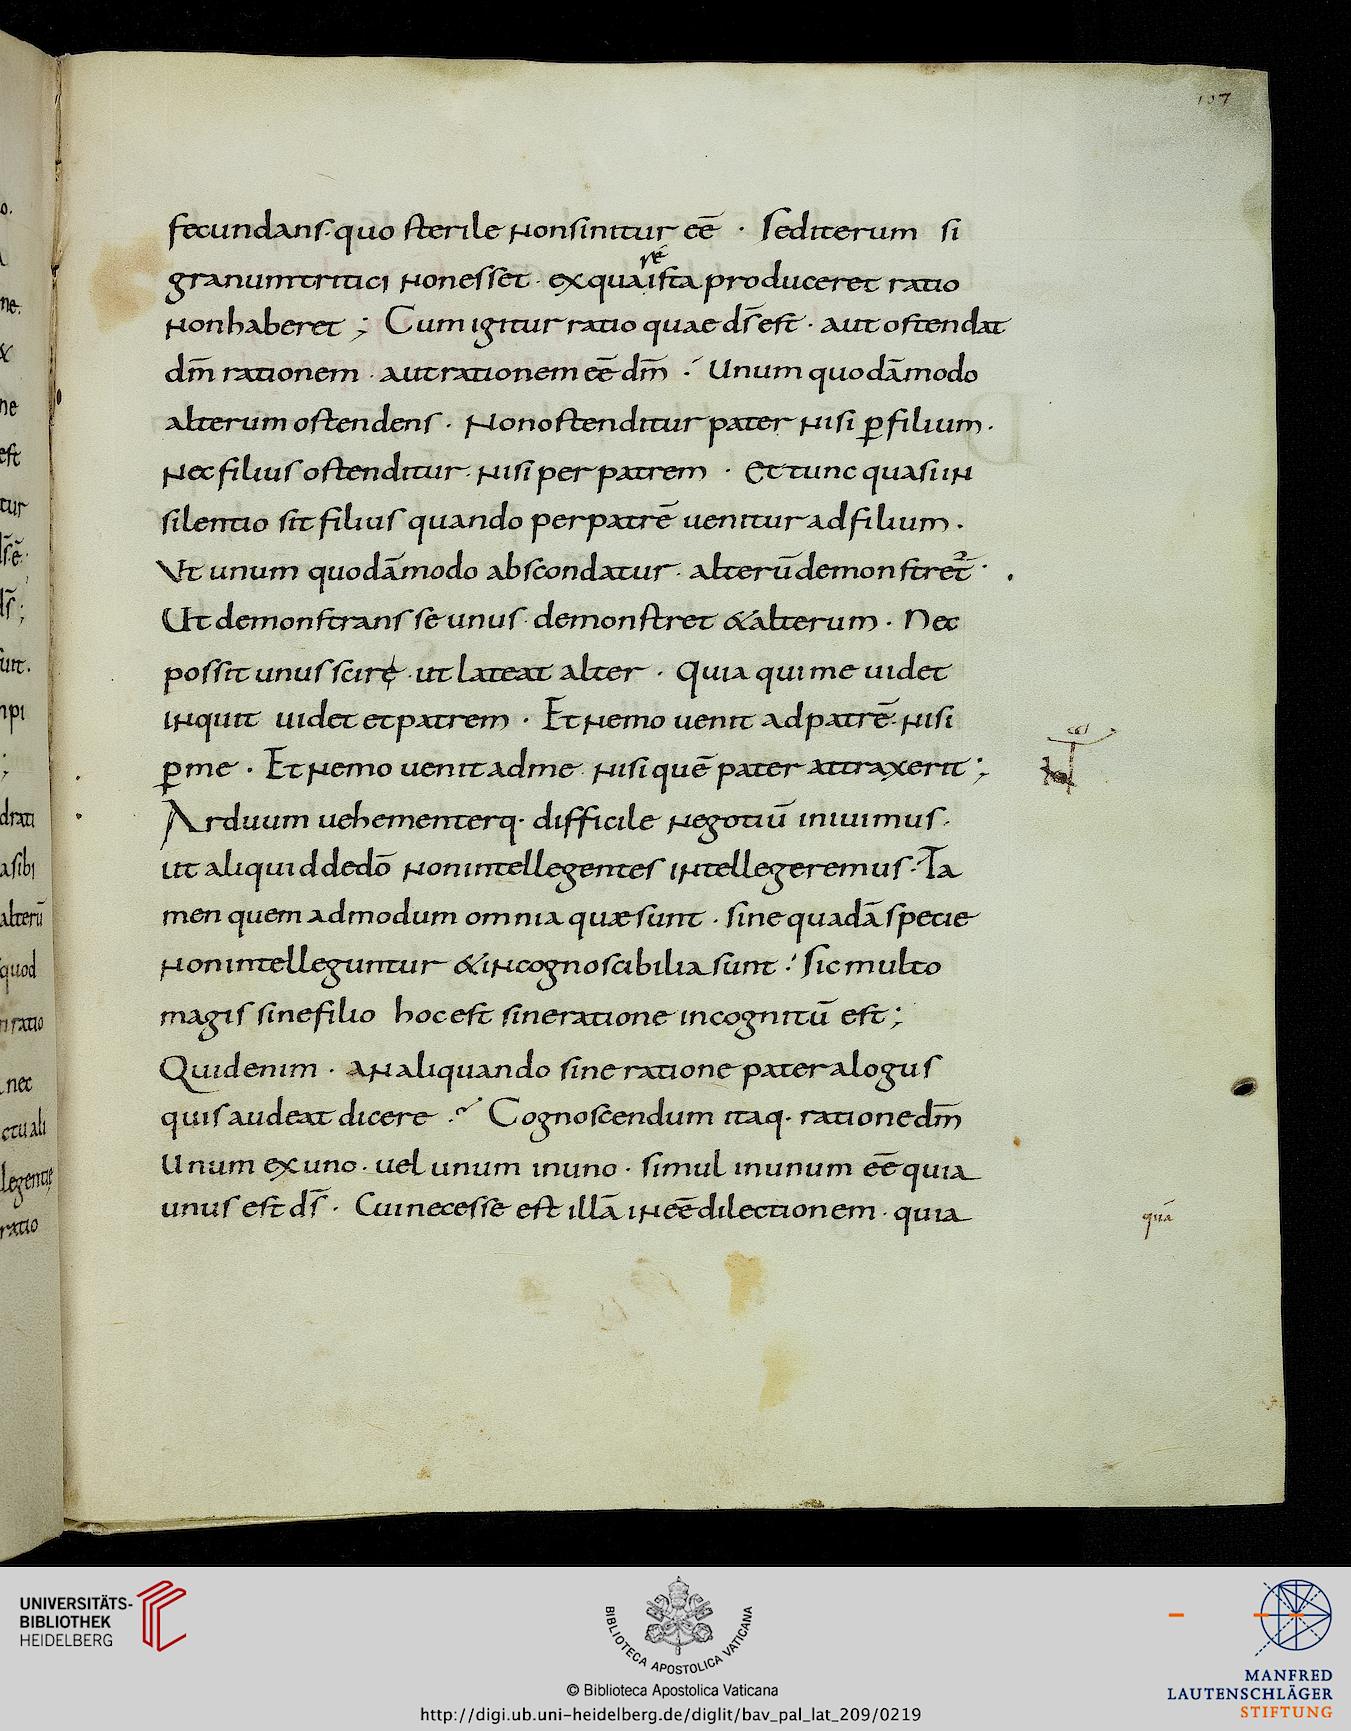 107
fecundans· quo sterile non sinitur eē · Sed iterum si
granum tritici non esset · ex qua re ista produceret ratio
non haberet ; Cum igitur ratio quae ds̄ est · aut ostendat
dm̄ rationem · aut rationem eē dm̄ · Unum quodāmodo
alterum ostendens · Non ostenditur pater nisi ꝑ filium ·
Nec filius ostenditur · nisi per patrem · Et tunc quasi in
silentio sit filius quando per patrē uenitur ad filium ·
Ut unum quodāmodo abscondatur · alterū demonstret̄ ·
Ut demonstrans se unus · demonstret & alterum · Nec
possit unus scire · ut lateat alter · Quia qui me uidet
inquit uidet et patrem · Et nemo uenit ad patrē · nisi
ꝑ me · Et nemo uenit ad me · nisi quē pater attraxerit ;
Arduum uehementerq· difficile negotiū iniuimus ·
ut aliquid de dō non intellegentes intellegeremus · Ta
men quemadmodum omnia quæ sunt · sine quadā specie
non intelleguntur & incognoscibilia sunt : Sic multo
magis sine filio hoc est sine ratione incognitū est ;
Quid enim · an aliquando sine ratione pater alogus
quis audeat dicere ·? Cognoscendum itaq· ratione dm̄
Unum ex uno · uel unum in uno · simul in unum eē quia
unus est ds̄ · Cui necesse est illā in eē dilectionem · quia
quā
UNIVERSITÄTS-
BIBLIOTHEK
HEIDELBERG
BIBLIOTECA APOSTOLICA VATICANA
© Biblioteca Apostolica Vaticana
http://digi.ub.uni-heidelberg.de/diglit/bav_pal_lat_209/0219
MANFRED
LAUTENSCHLÄGER
STIFTUNG